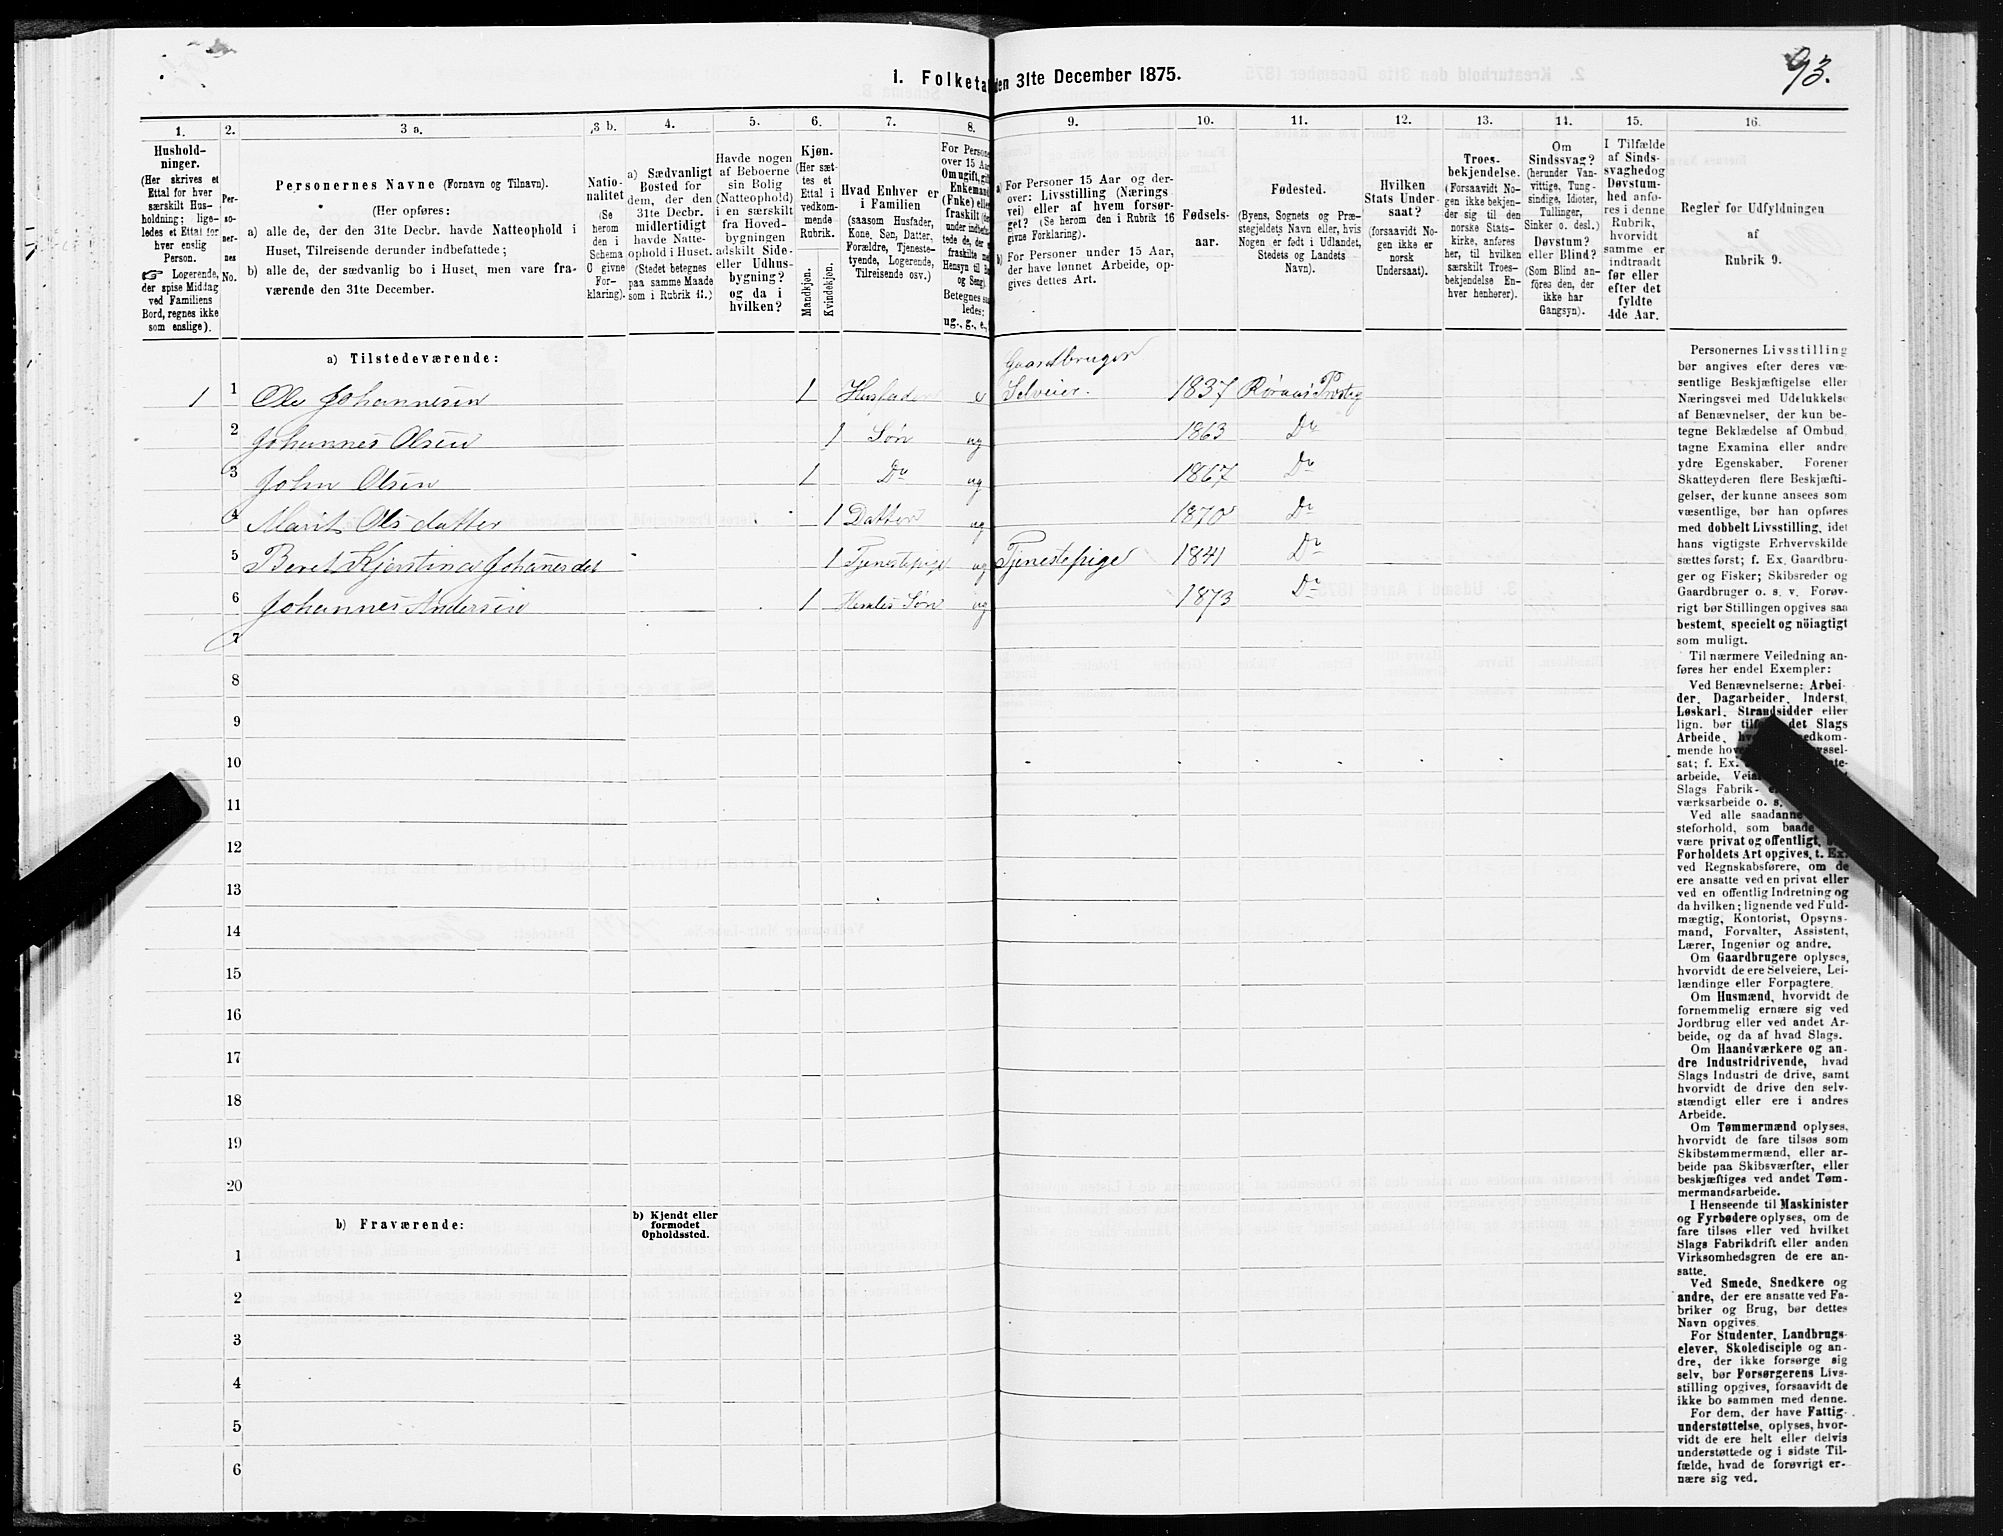 93.
1. Folketa den 31te December 1875.
1. 2. 3 a. 3 b. 4. 5. 6. 7. 8. 9. 10. 11. 12. 13. 14. 15. 16.
Hushold-
ninger.
(Her skrives et
Ettal for hver
særskilt Hus-
holdning; lige-
ledes et Ettal for
hver enslig
Person.
☞ Logerende,
der spise Middag
ved Familiens
Bord, regnes ikke
som enslige).
Per-
so-
ner-
nes
No.
Personernes Navne (Fornavn og Tilnavn).
(Her opføres:
a) alle de, der den 31te Decbr. havde Natteophold i
Huset, Tilreisende derunder indbefattede;
b) alle de, der sædvanlig bo i Huset, men vare fra-
værende den 31te December.
Natio-
nalitet
(Se
herom
den i
Schema
C givne
For-
klaring).
a) Sædvanligt
Bosted for
dem, der den
31te Decbr.
midlertidigt
havde Natte-
ophold i Huset.
(Stedet betegnes
paa samme Maade
som i Rubrik 11.)
Havde nogen
af Beboerne
sin Bolig
(Natteophold)
i en særskilt
fra Hoved-
bygningen
adskilt Side-
eller Udhus-
bygning?
og da i
hvilken?
Kjøn.
(Her sæt-
tes et
Ettal i
vedkom-
mende
Rubrik.
Mandkjøn.
Kvindekjøn.
Hvad Enhver er
i Familien
(saasom Husfader,
Kone, Søn, Datter,
Forældre, Tjeneste-
tyende, Logerende,
Tilreisende osv.)
For Persone
over 15 Aa
Om ugift, gift
Enkemand
(Fnke) elle
fraskilt (de
under indbefa
tede de, der e
fraskilte me
Hensyn til Bo
og Seng).
Betegnes saa
ledes:
ug., g., e.,
a) For Personer 15 Aar og der-
over: Livsstilling (Nærings
vei) eller af hvem forsør-
get? (Se herom den i Rubrik 16
givne Forklaring.)
b) For Personer under 15 Aar,
der have lønnet Arbeide, op-
gives dettes Art.
Fødsels-
aar.
Fødested.
(Byens, Sognets og Præ-
stegjeldets Navn eller, hvis
Nogen er født i Udlandet,
Stedets og Landets
Navn).
Hvilken
Stats Under-
saat?
(forsaavidt No-
gen ikke er
norsk
Undersaat).
Troes-
bekjendelse.
(Forsaavidt No-
gen ikke bekjen-
der sig til den
norske Stats-
kirke, anføres
her, til hvilken
særskilt Troes-
bekjendelse En-
hver henhører).
Om
Sindssvag?
(herunder Van-
vittige, Tung-
sindige, Idioter,
Tullinger,
Sinker o. desl.)
Døvstum?
eller Blind?
(Som Blind an-
føres den, der
ikke har
Gangsyn).
I Tilfælde
af Sinds-
svaghed og
Døvstum-
hed anfø-
res i denne
Rubrik,
hvorvidt
samme er
indtraadt
før eller
efter det
fyldte
4de Aar.
Regler for Udfyldningen
af
Rubrik 9.
a) Tilstedeværende:
Gaardbruger
1 1 Ole Johannesen 1 Husfader e Selveier. 1837 Røraas Præsteg
2 Johannes Olsen 1 Søn ug 1863 Do
3 John Olsen 1 Do ug 1867 Do
4 Marit Olsdatter 1 Datter ug 1870 Do
5 Beret Kjerstina Johanesdat 1 Tjenestepige ug Tjenestepige 1841 Do
6 Johannes Andersen 1 Hendes Søn ug 1873 Do
7
8
9
10
11
12
13
14
15
16
17
18
19
20
b) Fraværende:
b) Kjendt eller
formodet
Opholdssted.
1
2
3
4
5
6
Personernes Livsstilling
bør angives efter deres væ-
sentlige Beskjæftigelse eller
Næringsvei med Udelukkelse
af Benævnelser, der kun be-
tegne Beklædelse af Ombud,
tagne Examina eller andre
ydre Egenskaber. Forener
Skatteyderen flere Beskjæfti-
gelser, der kunne ansees som
væsentlige, bør han opføres
med dobbelt Livsstilling, idet
hans vigtigste Erhvervskilde
sættes først; f. Ex. Gaardbru-
ger og Fisker; Skibsreder og
Gaardbruger o. s. v. Forøv-
rigt bør Stillingen opgives saa
bestemt, specielt og nöiagtigt
som muligt.
Til nærmere Veiledning an-
føres her endel Exempler:
Ved Benævnelserne: Arbei-
der, Dagarbeider, Inderst,
Løskarl, Strandsidder eller
lign. bør det Slags
Arbeide, edkom-
mende hov yssel-
sat; f. Ex. te-
arbeide, Veia
Slags Fabrik-
værksarbeide o. s.
Ved alle saadanne
steforhold, som baade
være privat og offentligt,
Forholdets Art opgives, t. Ex.
ved Regnskabsførere, om de
ere ansatte ved en privat eller
ved en offentlig Indretning og
da hvilken; lignende ved Fuld-
mægtig, Kontorist, Opsyns-
mand, Forvalter, Assistent,
Lærer, Ingeniør og andre.
Om Gaardbrugere oplyses,
hvorvidt de ere Selveiere, Lei-
lændinge eller Forpagtere.
Om Husmænd, hvorvidt de
fornemmelig ernære sig ved
Jordbrug eller ved andet Ar-
beide, og da af hvad Slags.
Om Haandværkere og an-
dre Industridrivende, hvad
Slags Industri de drive, samt
hvorvidt de drive den selv-
stændigt eller ere i andres
Arbeide.
Om Tømmermænd oplyses,
hvorvidt de fare tilsøs som
Skibstømmermænd, eller ar-
beide paa Skibsværfter, eller
beskjæftiges ved andet Tøm-
mermandsarbeide.
I Henseende til Maskinister
og Fyrbødere oplyses, om de
fare tilsøs eller ved hvilket
Slags Fabrikdrift eller anden
Virksomhedsgren de ere an-
satte.
Ved Smede, Snedkere og
andre, der ere ansatte ved Fa-
briker og Brug, bør dettes
Navn opgives.
For Studenter, Landbrugs-
elever, Skoledisciple og an-
dre, der ikke forsørge sig
selv, bør Forsørgerens Livs-
stilling opgives, forsaavidt de
ikke bo sammen med denne.
For dem, der have Fattig-
understøttelse, oplyses, hvor-
vidt de ere helt eller delvis
understøttede og i sidste Til-
fælde, hvad de forøvrigt er-
nære sig ved.